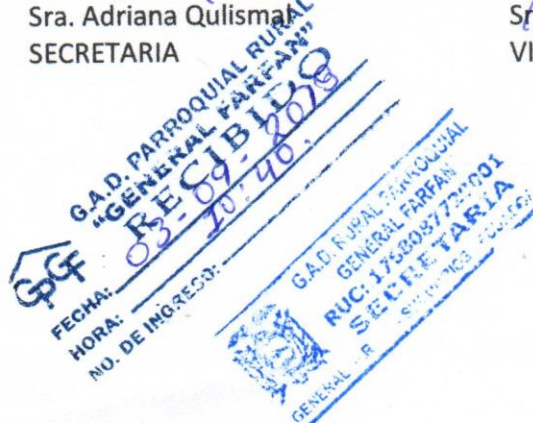 Sra. Adriana Qulismal
SECRETARIA
Sr
VI
G.A.D. PARROQUIAL RURAL
"GENERAL FARFAN"
RECIBIDO
GPGF
FECHA: 03-09-2019
HORA: 10:40.
NO. DE INGRESO:
G.A.D. RURAL PARROQUIAL
GENERAL FARFAN
RUC: 1768087720001
SECRETARIA
GENERAL